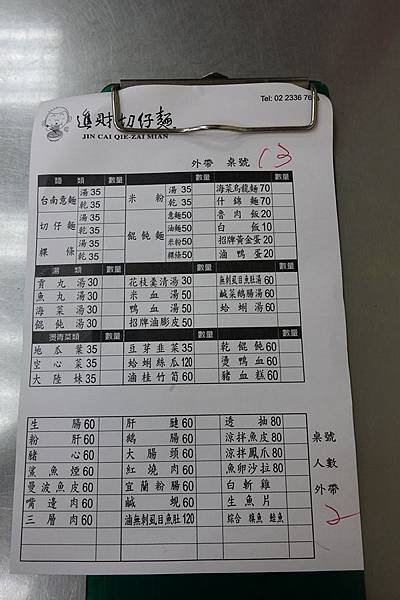 Tel: 02 2336 76
進財切仔麵
JIN CAI QIE-ZAI MIAN
外帶 桌號 13
麵類 數量 數量 數量
台南意麵 湯 35 米粉 湯 35 海菜烏龍麵 70
乾 35 乾 35 什錦麵 70
切仔麵 湯 35 餛飩麵 意麵 50 魯肉飯 20
乾 35 油麵 50 白飯 10
粿條 湯 35 米粉 50 招牌黃金蛋 20
乾 35 粿條 50 滷鴨蛋 20
湯類 數量 數量 數量
貢丸湯 30 花枝羹清湯 30 無刺虱目魚肚湯 60
魚丸湯 30 米血湯 50 鹹菜鵝腸湯 60
海菜湯 30 鴨血湯 50 蛤蜊湯 60
餛飩湯 30 招牌滷膨皮 50
燙青菜類 數量 數量 數量
地瓜葉 35 豆芽韭菜 35 乾餛飩 60
空心菜 35 蛤蜊絲瓜 120 燙鴨血 60
大陸妹 35 滷桂竹筍 60 豬血糕 60
生腸 60 肝腱 60 透抽 80
粉肝 60 鵝腸 60 涼拌魚皮 80
豬心 60 大腸頭 60 涼拌鳳爪 80
鯊魚煙 60 紅燒肉 60 魚卵沙拉 80
曼波魚皮 60 宜蘭粉腸 60 白斬雞
嘴邊肉 60 鹹蜆 60 生魚片
三層肉 60 滷無刺虱目魚肚 120 綜合 旗魚 鮭魚
桌號
人數
外帶
2